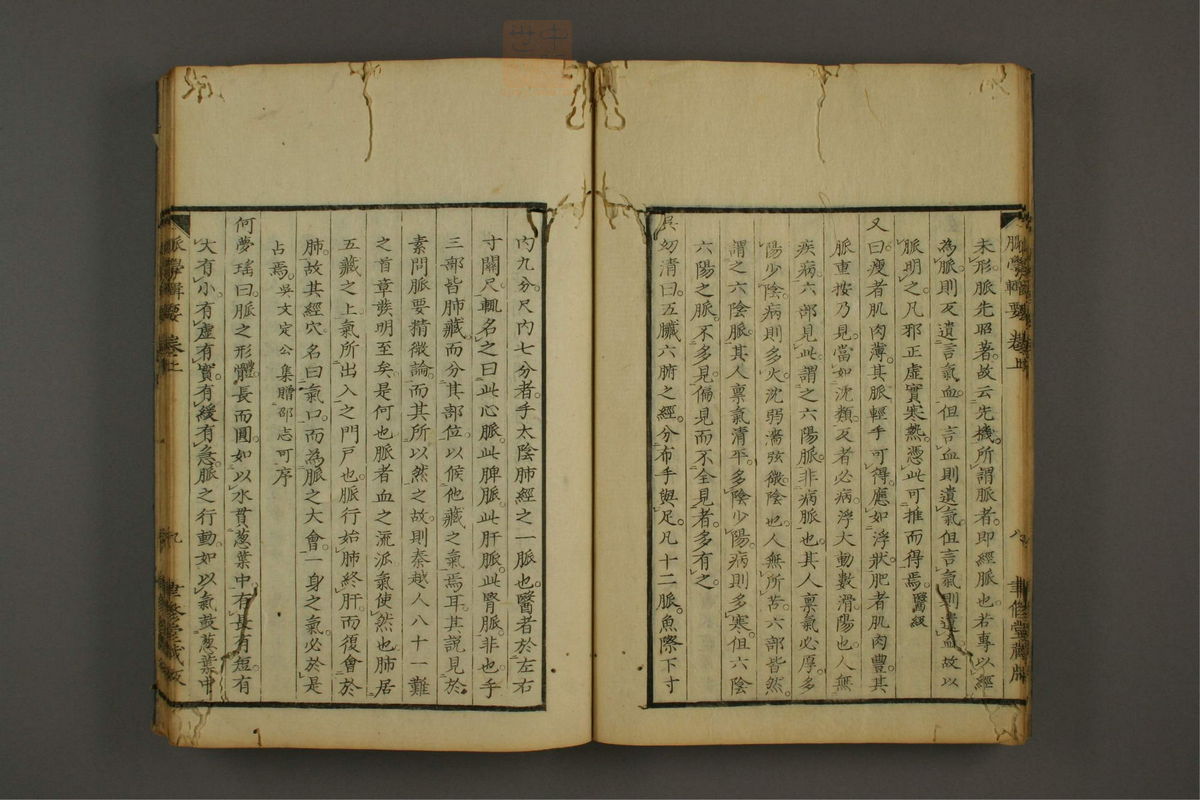 脈學輯要 卷上 八 聿修堂藏版
未形脈先昭著故云先機所謂脈者即經脈也若專以經
為脈則反遺言氣血但言血則遺氣但言氣則遺血故以
脈明之凡邪正虛實寒熱憑此可推而得焉醫級
又曰瘦者肌肉薄其脈輕手可得應如浮狀肥者肌肉豐其
脈重按乃見當如沈類反者必病浮大動數滑陽也人無
疾病六部見此謂之六陽脈非病脈也其人禀氣必厚多
陽少陰病則多火沈弱濇弦微陰也人無所苦六部皆然
謂之六陰脈其人禀氣清平多陰少陽病則多寒但六陰
六陽之脈不多見偏見而不全見者多有之
吳幼清曰五臟六腑之經分布手與足凡十二脈魚際下寸
內九分尺內七分者手太陰肺經之一脈也醫者於左右
寸關尺輒名之曰此心脈此脾脈此肝脈此腎脈非也手
三部皆肺藏而分其部位以候他藏之氣焉耳其說見於
素問脈要精微論而其所以然之故則秦越人八十一難
之首章發明至矣是何也脈者血之流派氣使然也肺居
五藏之上氣所出入之門戶也脈行始肺終肝而復會於
肺故其經穴名曰氣口而為脈之大會一身之氣必於是
占焉吳文定公集贈邵志可序
何夢瑤曰脈之形體長而圓如以水貫葱葉中有長有短有
大有小有虛有實有緩有急脈之行動如以氣鼓葱葉中
脈學輯要 卷上 九 聿修堂藏版